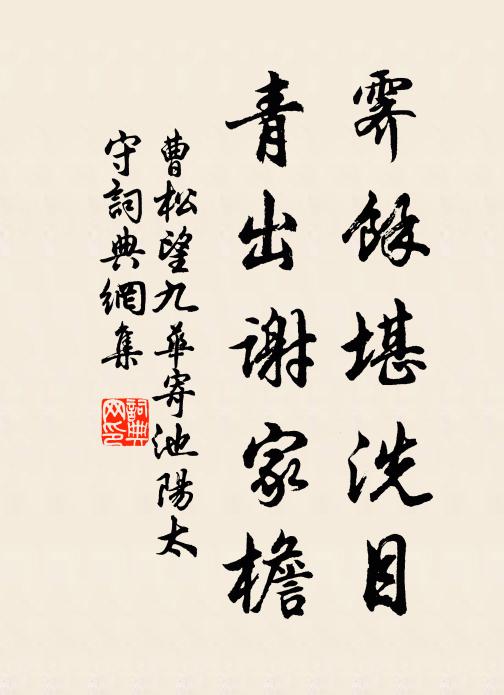 霽餘堪洗目
青出謝家檐
曹松望九華寄池陽太
守詞典網集
詞典
网印